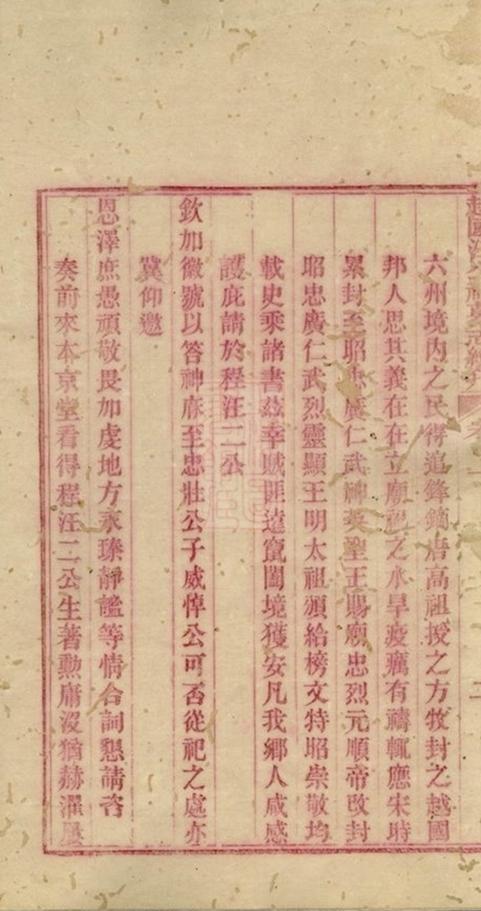 六州境内之民得追鋒鏑唐高祖授之方牧封之越國
邦人思其義在在立廟祀之水旱疫癘有禱輒應宋時
累封至昭忠廣仁武神英聖王賜廟忠烈元順帝改封
昭忠廣仁武烈靈顯王明太祖頒給榜文特昭崇敬均
載史乘諸書兹幸賊匪遠竄闔境獲安凡我鄉人咸感
護庇請於程汪二公
欽加徽號以答神庥至忠壯公子威悼公可否從祀之處亦
冀仰邀
恩澤庶愚頑敬畏加虔地方永臻靜謐等情合詞懇請咨
奏前來本京堂看得程汪二公生著勲庸沒猶赫濯